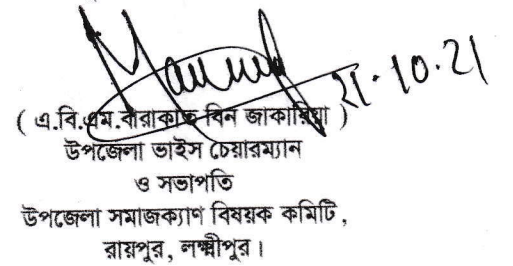 21.10.21
( এ.বি.এম.মারাকাত বিন জাকারিয়া )
উপজেলা ভাইস চেয়ারম্যান
ও সভাপতি
উপজেলা সমাজকল্যাণ বিষয়ক কমিটি ,
রায়পুর, লক্ষ্মীপুর।